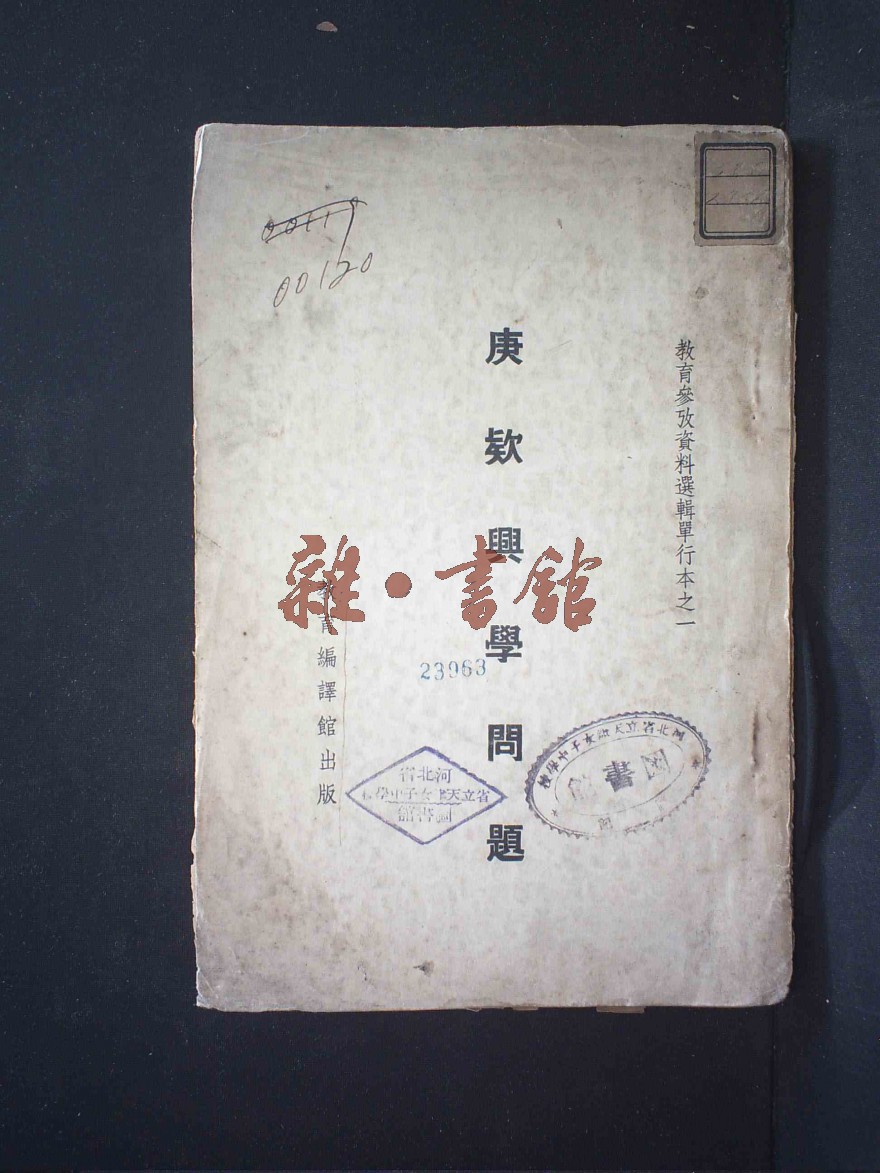 教育參攷資料選輯單行本之一
庚欵興學問題
教育編譯館出版
00119
00120
雜·書館
23963
河北省
省立天津女子中學校
圖書館
河北省立天津女子中學校
圖書館